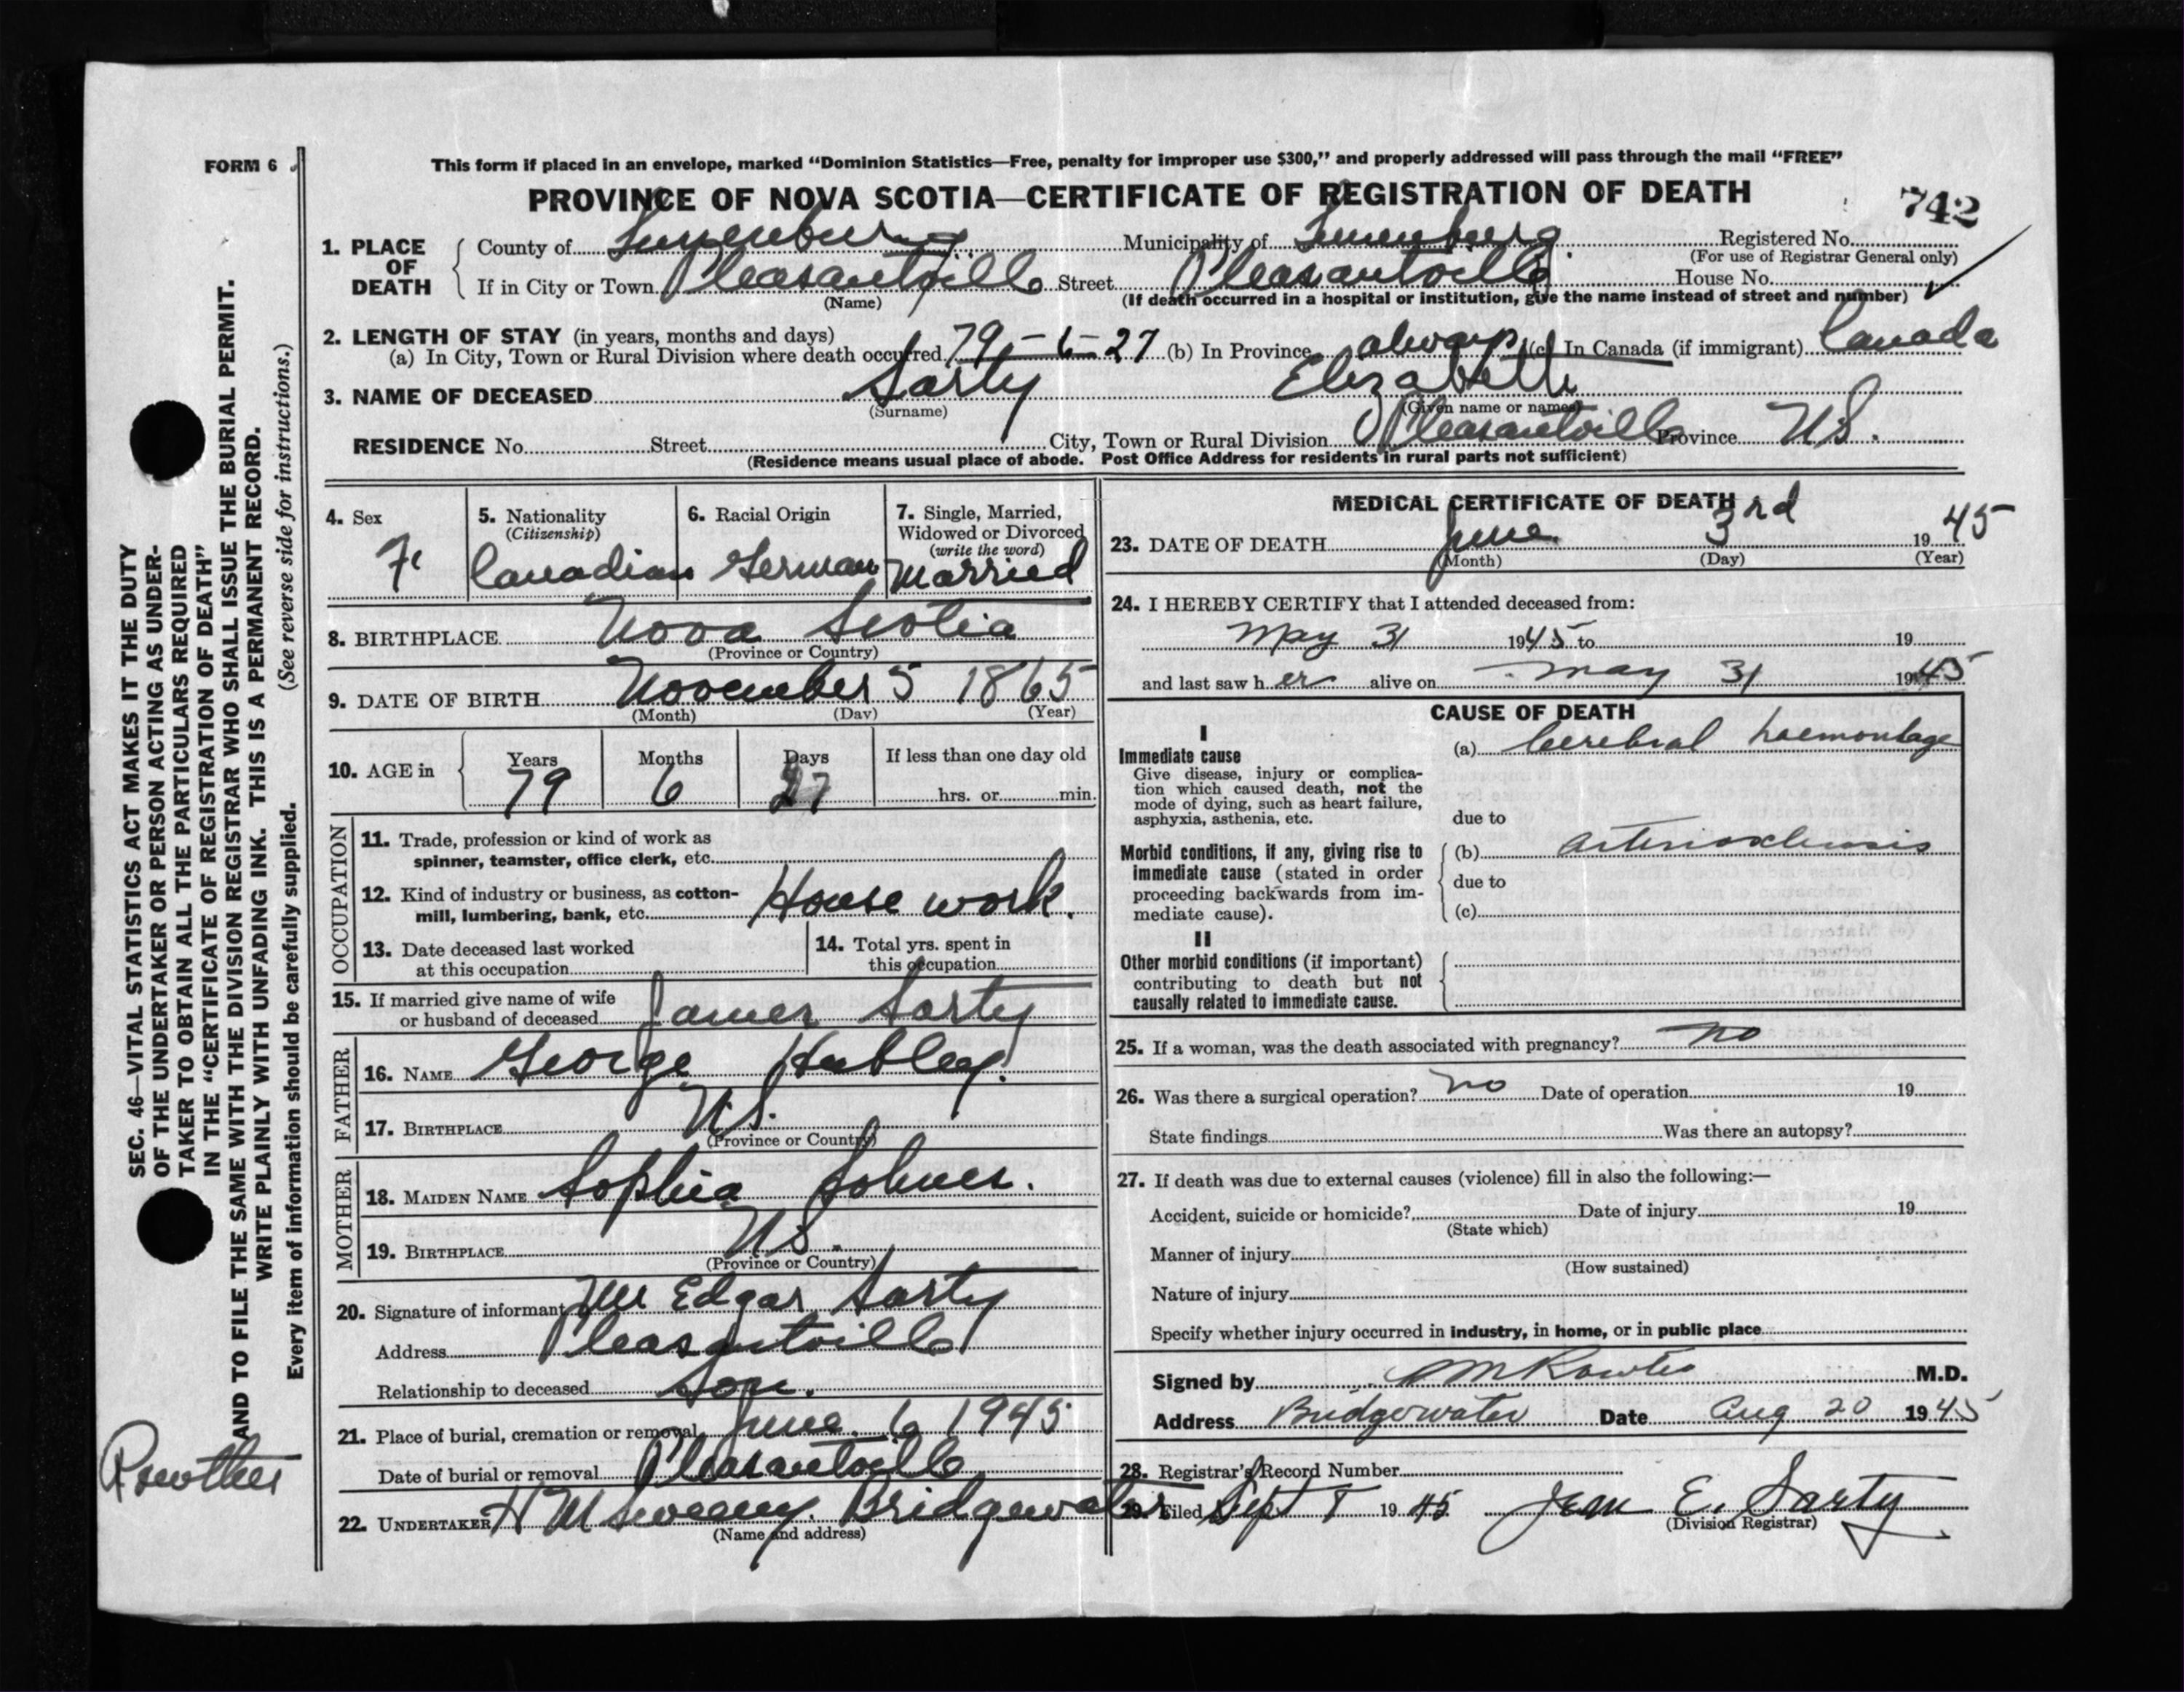 FORM 6
This form if placed in an envelope, marked "Dominion Statistics—Free, penalty for improper use $300," and properly addressed will pass through the mail "FREE"
PROVINCE OF NOVA SCOTIA—CERTIFICATE OF REGISTRATION OF DEATH
742
1. PLACE OF DEATH
County of Lunenburg Municipality of Lunenburg Registered No.
(For use of Registrar General only)
If in City or Town Pleasantville Street Pleasantville House No.
(Name) (If death occurred in a hospital or institution, give the name instead of street and number)
2. LENGTH OF STAY (in years, months and days)
(a) In City, Town or Rural Division where death occurred 79-6-27 (b) In Province always (c) In Canada (if immigrant) Canada
3. NAME OF DECEASED Sarty Elizabeth
(Surname) (Given name or names)
RESIDENCE No. Street City, Town or Rural Division Pleasantville Province N.S.
(Residence means usual place of abode. Post Office Address for residents in rural parts not sufficient)
4. Sex F.
5. Nationality (Citizenship) Canadian
6. Racial Origin German
7. Single, Married, Widowed or Divorced (write the word) Married
8. BIRTHPLACE Nova Scotia
(Province or Country)
9. DATE OF BIRTH November 5 1865
(Month) (Day) (Year)
10. AGE in Years 79 Months 6 Days 27 If less than one day old
hrs. or min.
OCCUPATION
11. Trade, profession or kind of work as
spinner, teamster, office clerk, etc.
12. Kind of industry or business, as cotton-
mill, lumbering, bank, etc. House work.
13. Date deceased last worked
at this occupation
14. Total yrs. spent in
this occupation
15. If married give name of wife
or husband of deceased James Sarty
FATHER
16. NAME George Hubley.
17. BIRTHPLACE N.S.
(Province or Country)
MOTHER
18. MAIDEN NAME Sophia
19. BIRTHPLACE N.S.
(Province or Country)
20. Signature of informant Edgar Sarty
Address Pleasantville
Relationship to deceased Son.
21. Place of burial, cremation or removal June. 6 1945
Date of burial or removal Pleasantville
22. UNDERTAKER H M Sweeny. Bridgewater
(Name and address)
MEDICAL CERTIFICATE OF DEATH
23. DATE OF DEATH June 3rd 1945
(Month) (Day) (Year)
24. I HEREBY CERTIFY that I attended deceased from:
May 31 1945 to 19
and last saw her alive on May 31 1945
CAUSE OF DEATH
I
Immediate cause
Give disease, injury or complica-
tion which caused death, not the
mode of dying, such as heart failure,
asphyxia, asthenia, etc.
(a) Cerebral haemorrhage
due to
Morbid conditions, if any, giving rise to
immediate cause (stated in order
proceeding backwards from im-
mediate cause).
(b) Arteriosclerosis
due to
(c)
II
Other morbid conditions (if important)
contributing to death but not
causally related to immediate cause.
25. If a woman, was the death associated with pregnancy? no
26. Was there a surgical operation? no Date of operation 19
State findings Was there an autopsy?
27. If death was due to external causes (violence) fill in also the following:—
Accident, suicide or homicide? Date of injury 19
(State which)
Manner of injury
(How sustained)
Nature of injury
Specify whether injury occurred in industry, in home, or in public place
Signed by M.D.
Address Bridgewater Date Aug 20 1945
28. Registrar's Record Number
29. Filed Sept 8 1945 Jean E. Sarty
(Division Registrar)
SEC. 46—VITAL STATISTICS ACT MAKES IT THE DUTY
OF THE UNDERTAKER OR PERSON ACTING AS UNDER-
TAKER TO OBTAIN ALL THE PARTICULARS REQUIRED
IN THE "CERTIFICATE OF REGISTRATION OF DEATH"
AND TO FILE THE SAME WITH THE DIVISION REGISTRAR WHO SHALL ISSUE THE BURIAL PERMIT.
WRITE PLAINLY WITH UNFADING INK. THIS IS A PERMANENT RECORD.
Every item of information should be carefully supplied. (See reverse side for instructions.)